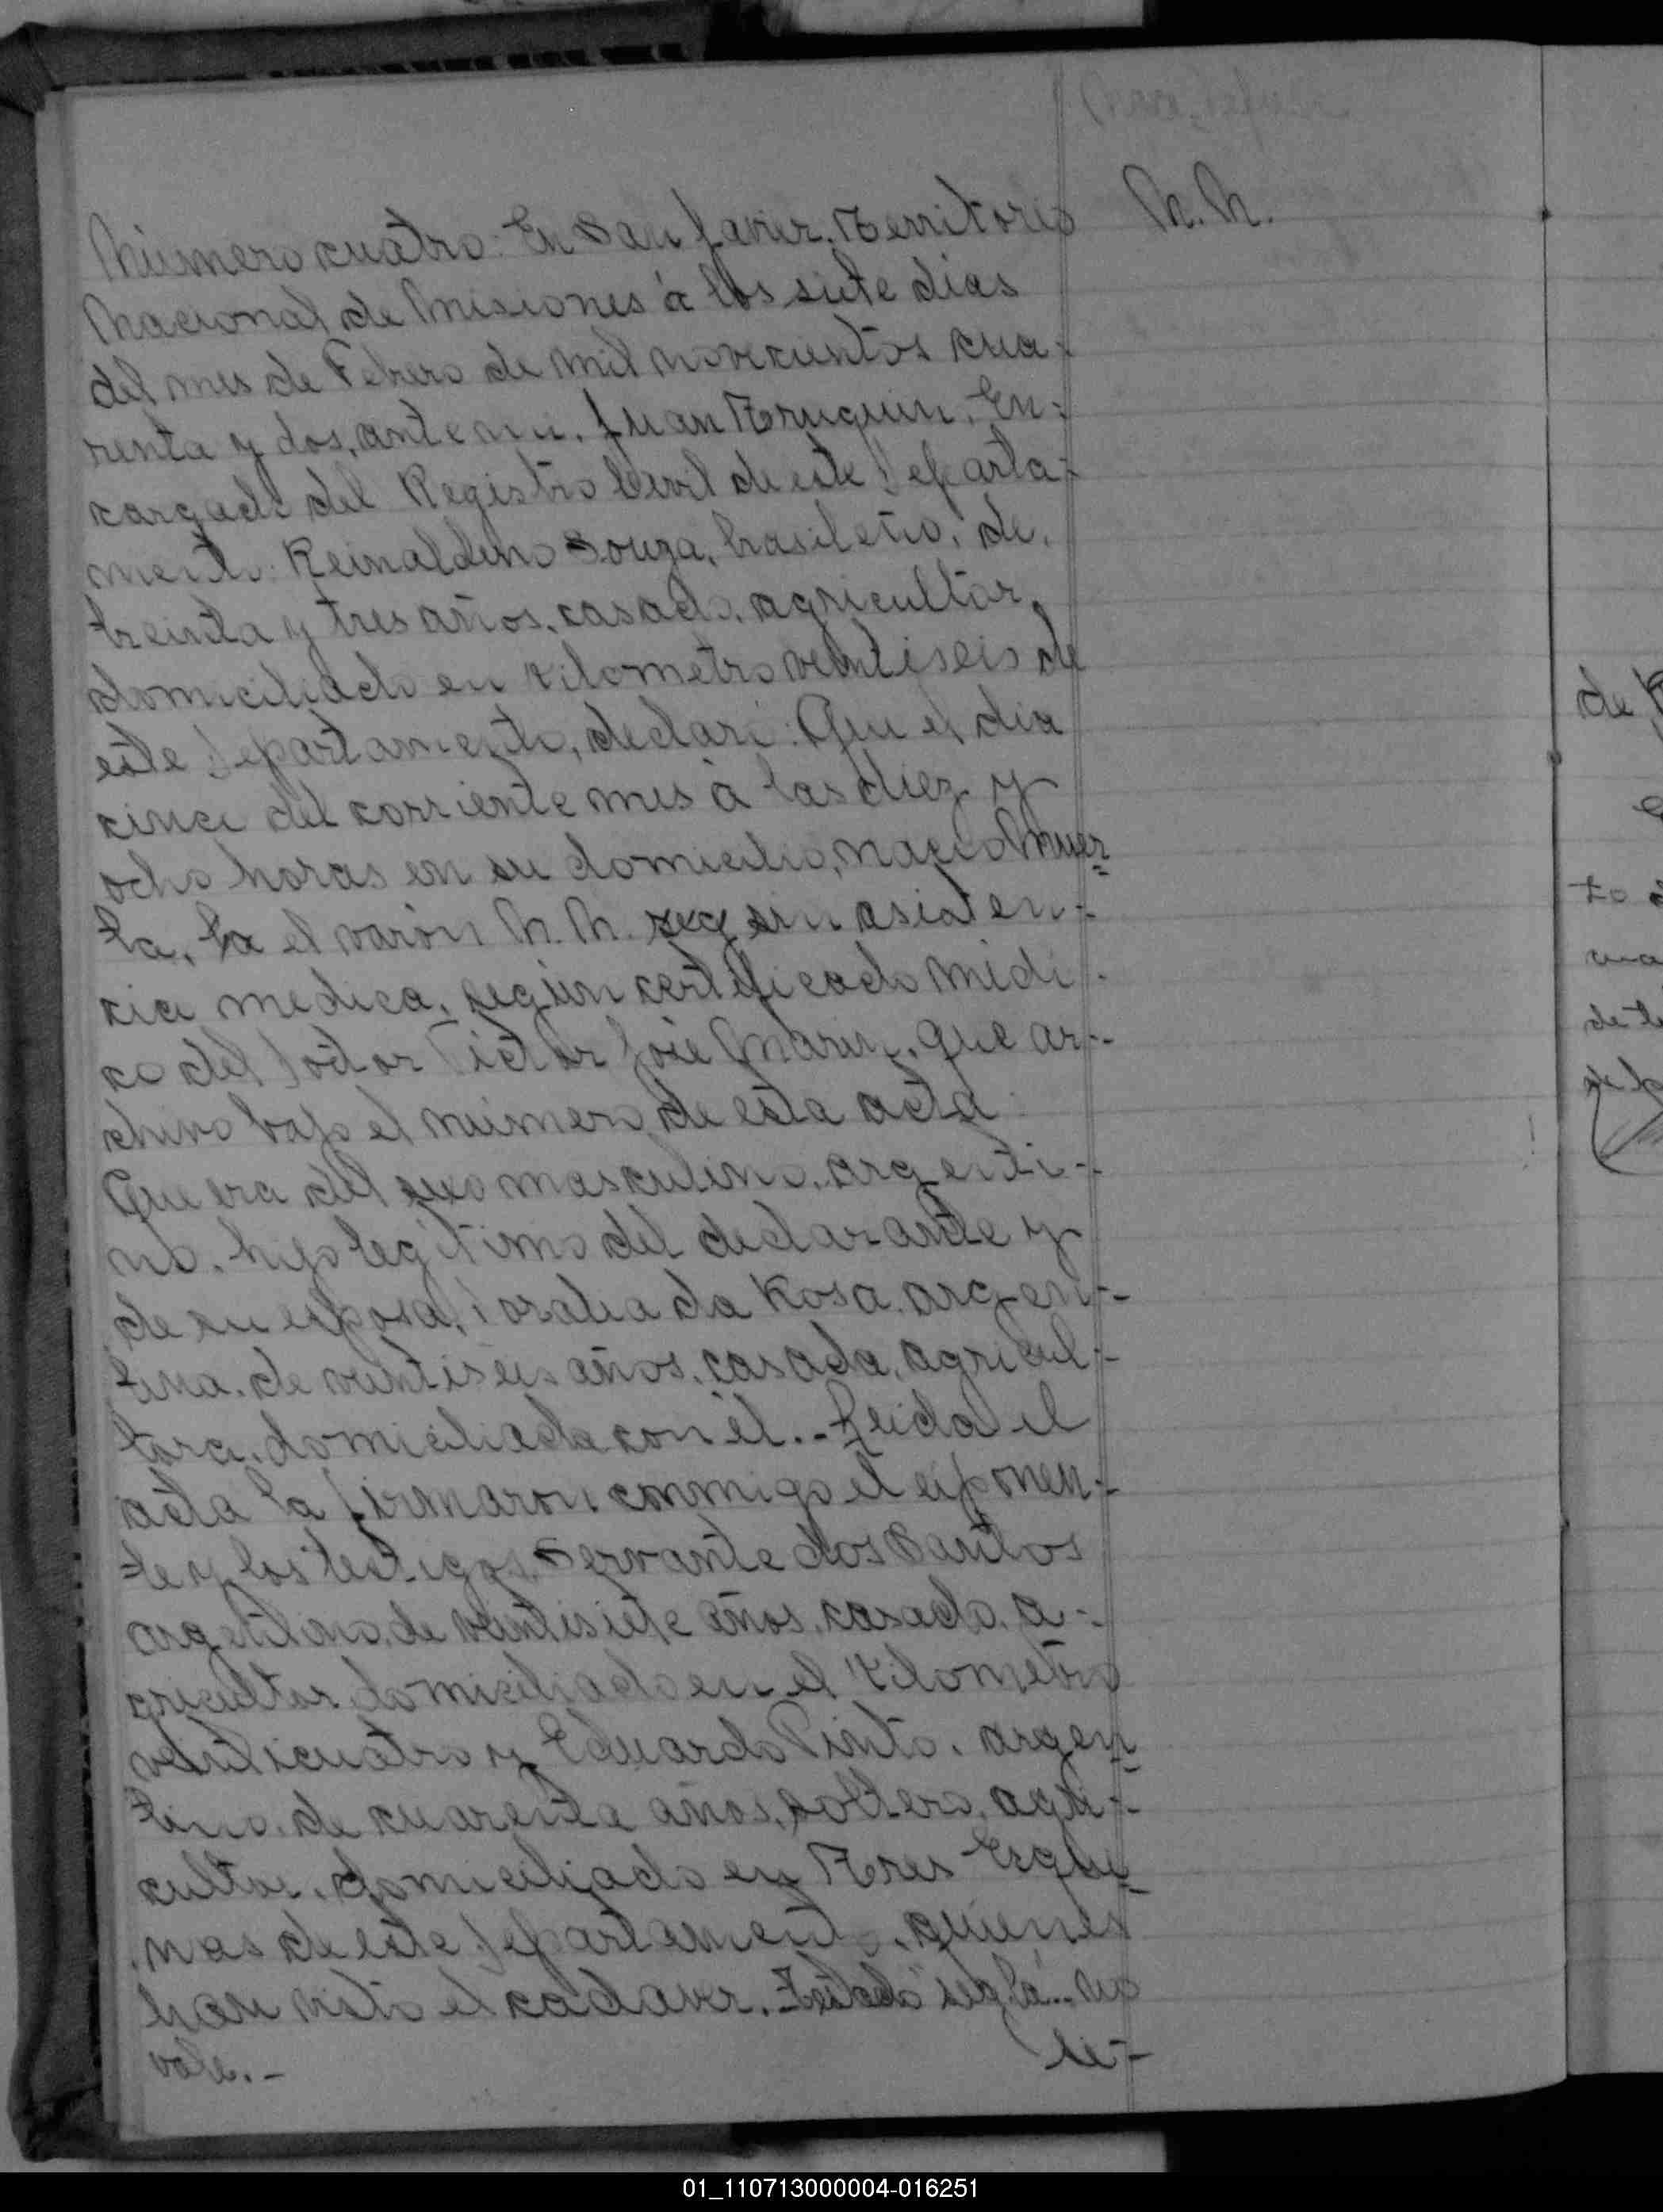 N. N.
Número cuatro: En San Javier, Territorio
Nacional de Misiones á los siete dias
del mes de Febrero de mil novecientos cua-
renta y dos, ante mi, Juan Truquin, En-
cargado del Registro Civil de este Departa-
mento: Reinaldino Souza, brasileño, de
treinta y tres años, casado, agricultor,
domiciliado en kilometro veintiseis de
este Departamento, declaró: Que el dia
cinco del corriente mes á las diez y
ocho horas en su domicilio, nació muer=
ta, la el varón N. N. seg sin asisten-
cia medica, según certificado médi-
co del Doctor Victor José Marin, que ar-
chivo bajo el número de esta acta:
Que era del sexo masculino, argenti-
no, hijo legitimo del declarante y
de su esposa, Doralia da Rosa, argen-
tina, de veintiseis años, casada, agricul-
tora, domiciliada con él.. Leida el
acta la firmaron conmigo el exponen-
te y los testigos, Servante dos Santos
argentino, de veintisiete años, casado, a-
gricultor domiciliado en el kilometro
veinticuatro y Eduardo Pinto, argen=
tino, de cuarenta años, soltero, agri-
cultor, domiciliado en Tres Esqui-
nas de este Departamento, quienes
han visto el cadaver. Testado "seg. la".. no
vale.-
de
to